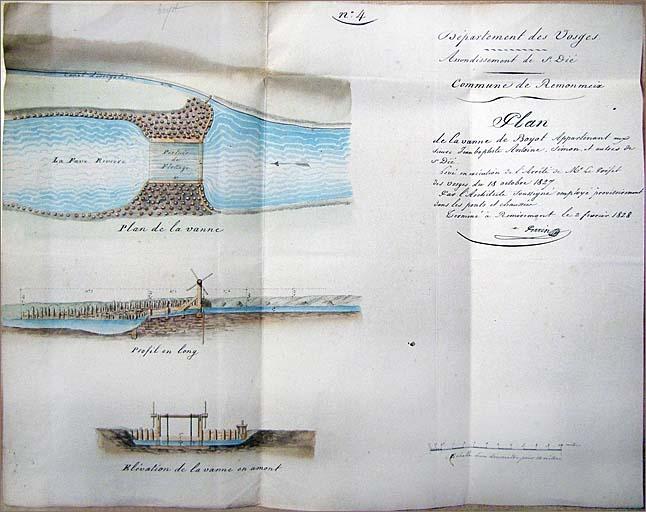 nº 4
Département des Vosges
Arrondissement de St Dié
Commune de Remonmeix
Plan
de la vanne de Boyot Appartenant aux
Sieurs Jean baptiste Antoine, Simon, et autres de
St Dié
Levé en exécution de l'Arrêté de Mr Le Préfet
des Vosges du 18 octobre 1827
Par l'Architecte Soussigné employé provisoirement
dans les ponts et chaussées
Terminé à Remiremont le 2 fevrier 1828
Perrin
Canal d'irrigation
La Fave Rivière
Pertuis
de
Flottage
Plan de la vanne
Profil en long
Elévation de la vanne en amont